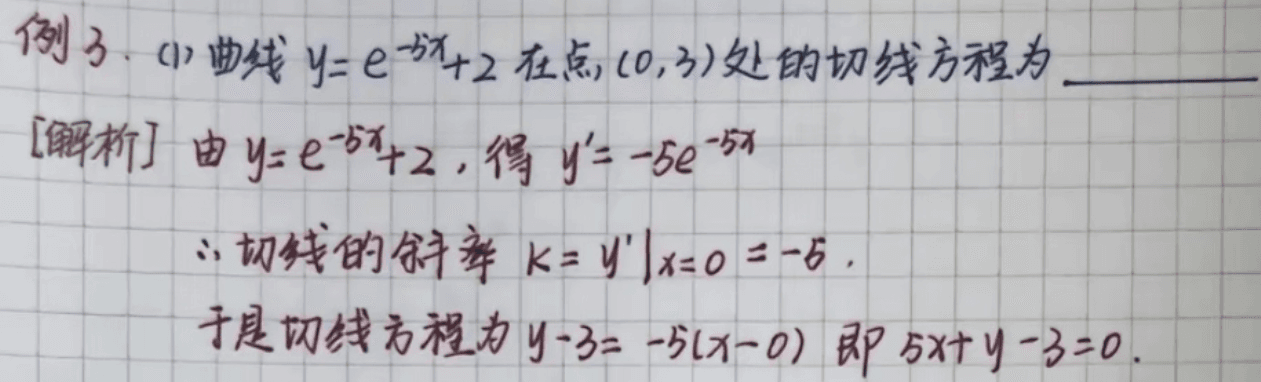 例3. (1) 曲线 y=e^{-5x}+2 在点(0,3)处的切线方程为______
[解析] 由 y=e^{-5x}+2, 得 y'=-5e^{-5x}
∴切线的斜率 k=y'|x=0=-5.
于是切线方程为 y-3=-5(x-0) 即 5x+y-3=0.